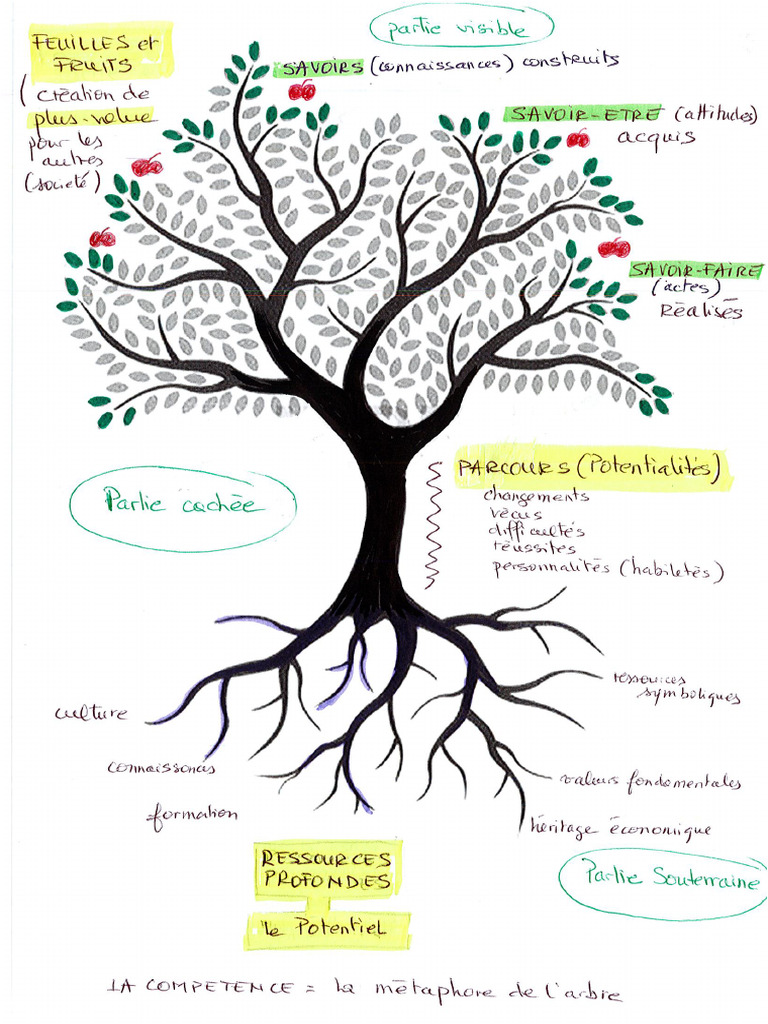 partie visible
FEUILLES et
FRUITS
(création de
plus-value
pour les
autres
(société)
SAVOIRS (connaissances) construits
SAVOIR-ETRE (attitudes)
acquis
SAVOIR-FAIRE
(actes)
Réalisés
Partie cachée
PARCOURS (Potentialités)
changements
vécus
difficultés
réussites
personnalités (habiletés)
ressources
symboliques
culture
connaissances
formation
valeurs fondamentales
héritage économique
RESSOURCES
PROFONDES
le Potentiel
Partie Souterraine
LA COMPETENCE = la métaphore de l'arbre